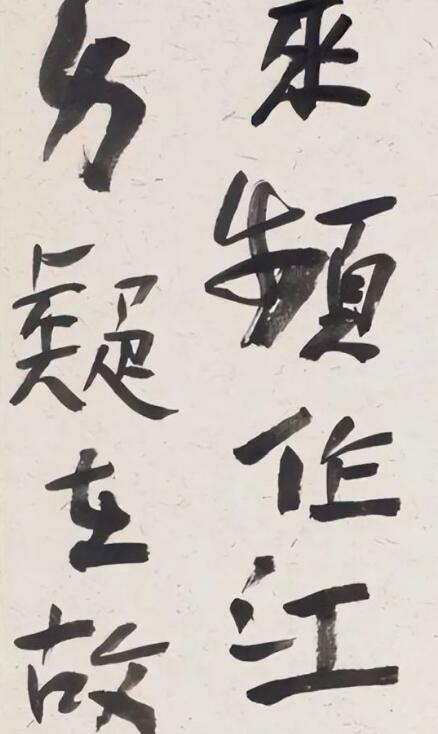 來頻作江
身疑在故